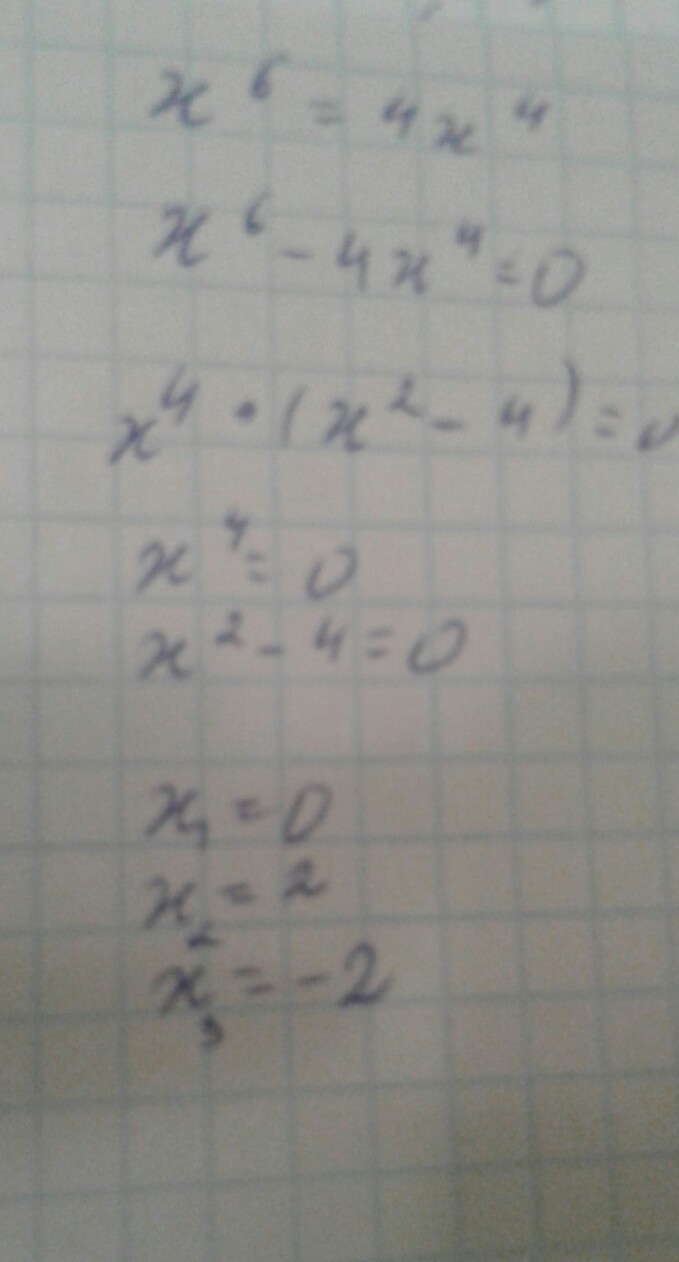 x⁶ = 4x⁴
x⁶ - 4x⁴ = 0
x⁴ · (x² - 4) = 0
x⁴ = 0
x² - 4 = 0
x₁ = 0
x₂ = 2
x₃ = -2